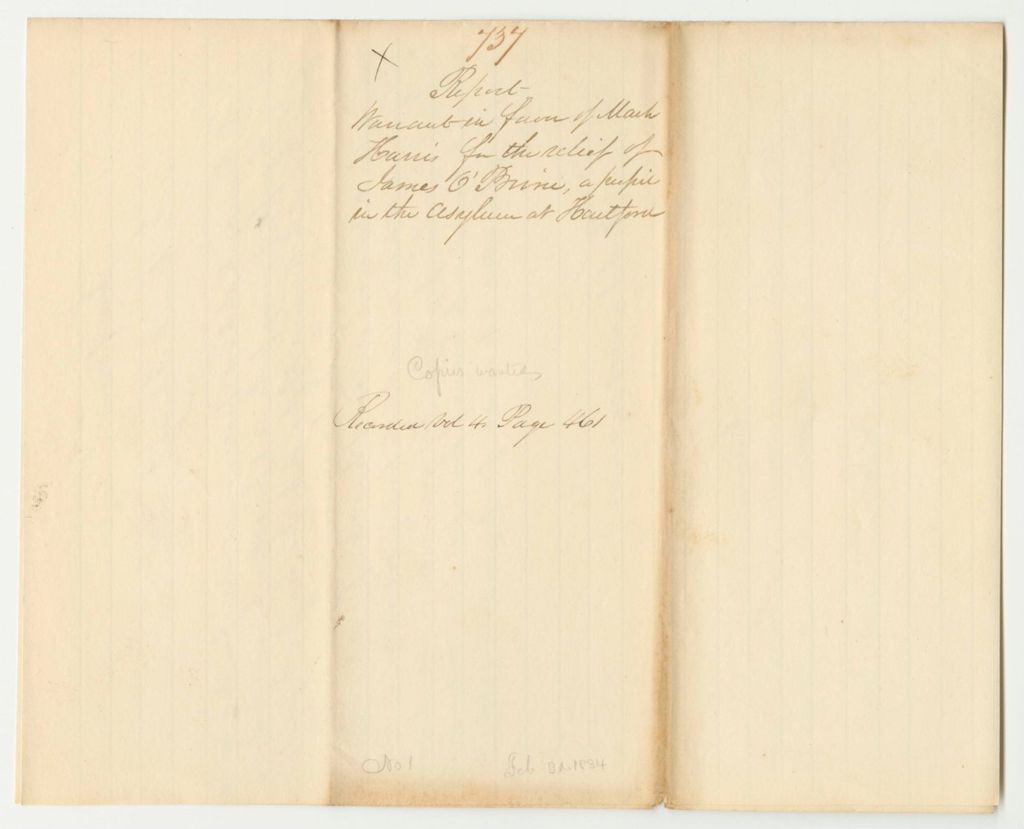 737
X
Report
Warrant in favor of Mark
Harris for the relief of
James O'Brine, a pupil
in the Asylum at Hartford
Copies wanted
Recorded Vol 4. Page 461
No 1
Feb 1834